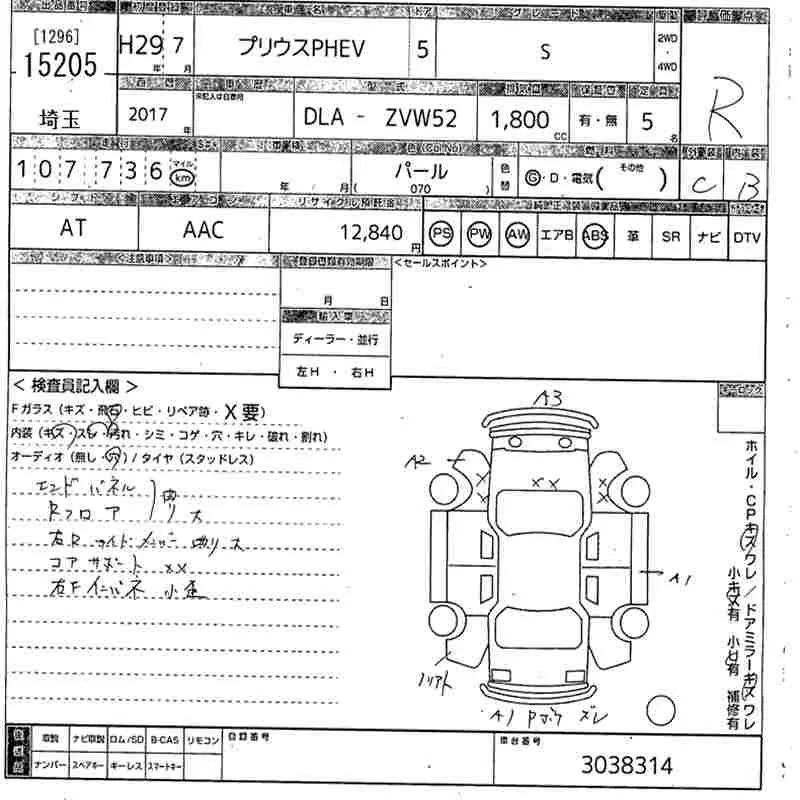 出品番号 初度登録 車名 ドア グレード 駆動 評価点
[1296] H29 7 プリウスPHEV 5 S 2WD・4WD R
15205 年 月
車歴 型式 排気量 保証書 定員
埼玉 2017 年 未記入は自家用 DLA - ZVW52 1,800 CC 有・無 5 名
走行 車検 色(Col No) 燃料 外装 内装
107,736 マイル km 年 月 パール ( 070 ) 色替 G・D・電気( その他 ) C B
シフト エアコン リサイクル預託金 純正
AT AAC 12,840 円 PS PW AW エアB ABS 革 SR ナビ DTV
<注意事項> 登録書類有効期限 <セールスポイント>
月 日
輸入車
ディーラー・並行
左H ・ 右H
< 検査員記入欄 >
Fガラス (キズ・飛石・ヒビ・リペア跡・X要)
内装 (キズ・スレ・汚れ・シミ・コゲ・穴・キレ・破れ・割れ)
オーディオ (無し・穴) / タイヤ (スタッドレス)
エンドパネル
Rフロア 曲リ大
右Rサイドメンバー 曲リ大
コアサポート XX
右Fインパネ 小歪
A3
A2
XX
A1
ノリアト
A1 Pマク ズレ
ホイル・CPキズワレ/ドアミラーキズワレ
小キズ有 小凹有 補修有
取説 ナビ取説 ロム/SD B-CAS リモコン 登録番号 車台番号
ナンバー スペアキー キーレス スマートキー 3038314